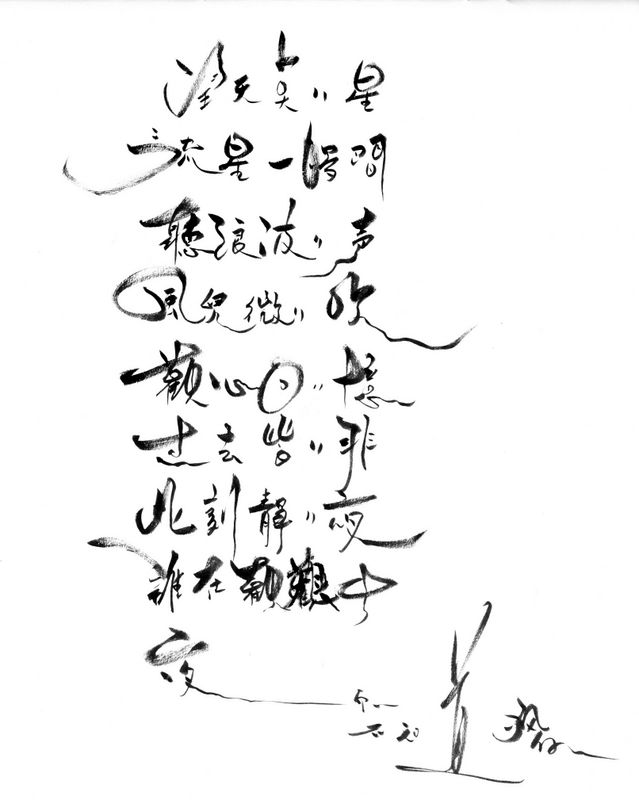 望天点〃星
流星一時間
聽浪波〃声
風兒微〃吹
觀心回〃憶
过去皆〃非
此刻靜〃夜
誰在觀觀中
夜